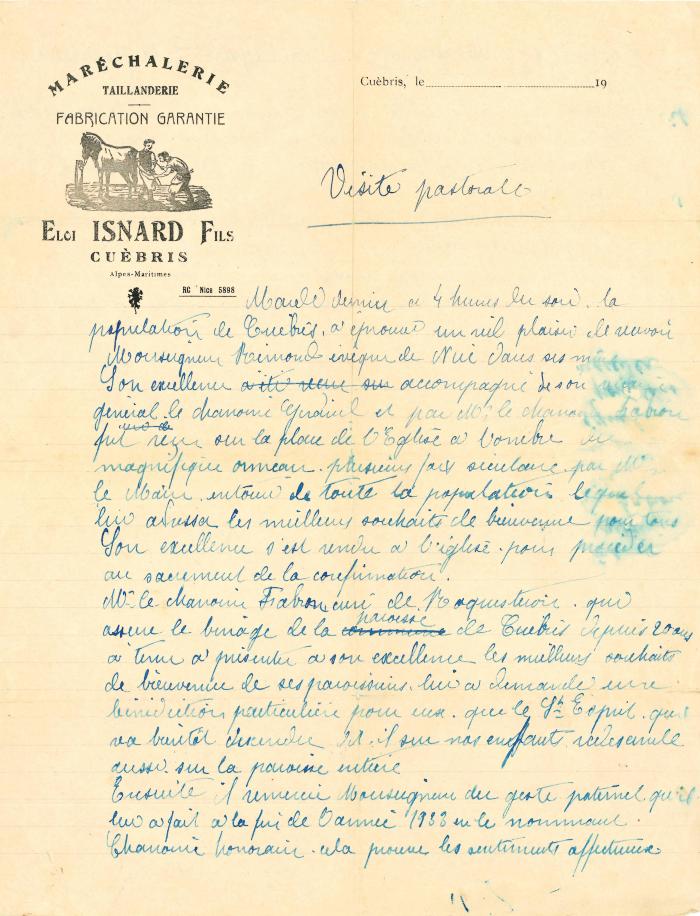 MARÉCHALERIE
TAILLANDERIE
FABRICATION GARANTIE
Eloi ISNARD Fils
CUÈBRIS
Alpes-Maritimes
RC Nice 5898
Cuèbris, le 19
Visite pastorale
Mardi dernier a 4 heures du soir, la
population de Cuebris, a éprouvé un réel plaisir de recevoir
Monseigneur Rémond évêque de Nice dans ses
Son excellence a été reçue sur accompagné de son
général le chanoine et par Mr le chanoine Fabron
fut reçu sur la place de l'Eglise a l'ombre
magnifique ormeau plusieurs fois séculaire par Mr
le Maire entouré de toute la population lequel
lui adressa les meilleurs souhaits de bienvenue pour tous
Son excellence s'est rendu a l'église pour procéder
au sacrement de la confirmation.
Mr le chanoine Fabron curé de Roquesteron qui
assure le binage de la commune paroisse de Cuebris depuis 20 ans
a tenu a présenter a son excellence les meilleurs souhaits
de bienvenue de ses paroissiens, lui a demandé une
bénédiction particulière pour eux que le St Esprit qui
va bientôt descendre dit-il sur nos enfants redescende
aussi sur la paroisse entière
Ensuite il remercie Monseigneur du geste paternel qu'il
lui a fait a la fin de l'année 1933 en le nommant
Chanoine honoraire cela prouve les sentiments affectueux